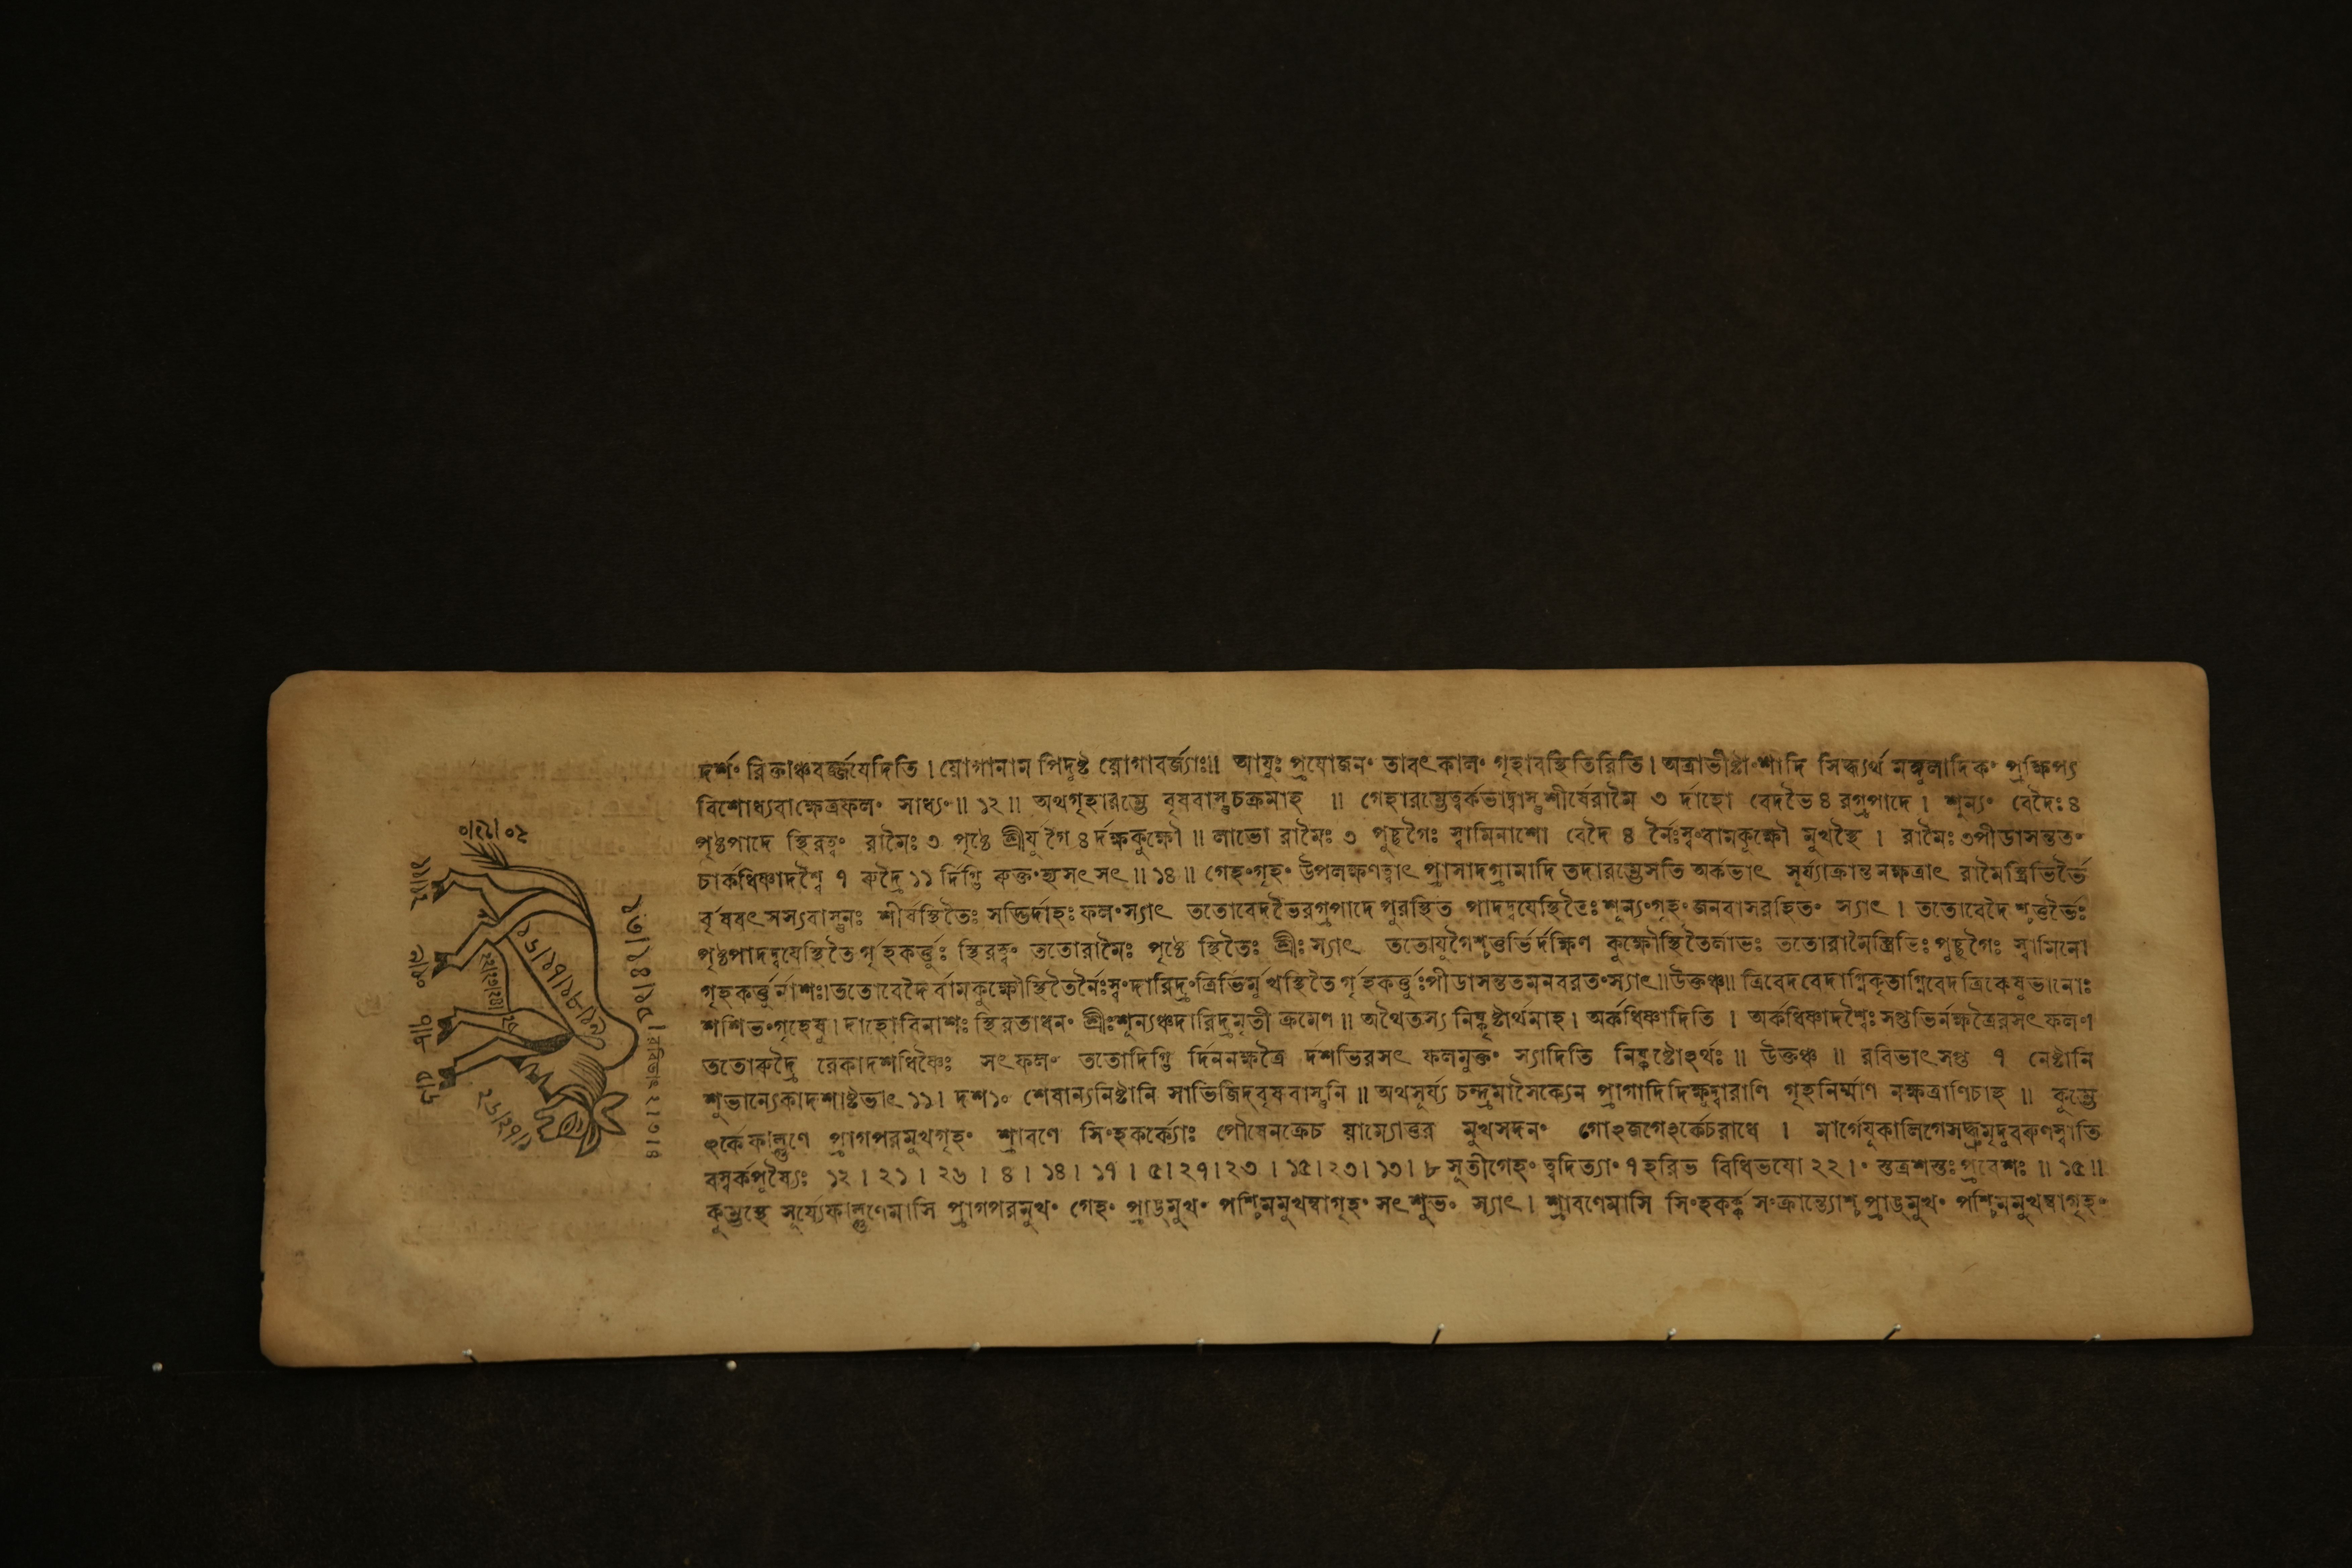 দর্শং রিক্তাঞ্চবর্জ্জযেদিতি । য়োগানাম পিদুষ্ট য়োগাবর্জ্যাঃ॥ আযুঃ প্রযোজনং তাবৎকালং গৃহাবস্থিতিরিতি । অত্রাভীষ্টাংশাদি সিদ্ধ্যর্থ মঙ্গুলাদিকং প্রক্ষিপ্য
বিশোধ্যবাক্ষেত্রফলং সাধ্যং ॥ ১২ ॥ অথগৃহারম্ভে বৃষবাস্তুচক্রমাহ ॥ গেহারম্ভেত্বর্কভাদ্বাস্তুশীর্ষেরামৈ ৩ র্দাহো বেদভৈ ৪ রগ্রপাদে । শূন্যং বেদৈঃ ৪
পৃষ্ঠপাদে স্থিরত্বং রামৈঃ ৩ পৃষ্ঠে শ্রীযুগৈ ৪ র্দক্ষকুক্ষৌ ॥ লাভো রামৈঃ ৩ পুচ্ছগৈঃ স্বামিনাশো বেদৈ ৪ র্নৈঃস্বংবামকুক্ষৌ মুখস্থৈ । রামৈঃ ৩পীডাসন্ততং
চার্কধিষ্ণ্যাদশ্বৈ ৭ রুদ্রৈ ১১ র্দিগ্ভি রুক্তংহ্যসৎ সৎ ॥ ১৪ ॥ গেহংগৃহং উপলক্ষণত্বাৎ প্রাসাদগ্রামাদি তদারম্ভেসতি অর্কভাৎ সূর্য্যাক্রান্তনক্ষত্রাৎ রামৈস্ত্রিভির্ভৈ
র্বৃষবৎসস্যবাস্তুনঃ শীর্ষস্থিতৈঃ সদ্ভির্দাহঃ ফলংস্যাৎ ততোবেদভৈরগ্রপাদে পুরস্থিত পাদদ্বযেস্থিতৈঃ শূন্যংগৃহং জনবাসরহিতং স্যাৎ । ততোবেদৈ শ্চতুর্ভৈঃ
পৃষ্ঠপাদদ্বযেস্থিতৈ র্গৃহকর্ত্তুঃ স্থিরত্বং ততোরামৈঃ পৃষ্ঠে স্থিতৈঃ শ্রীঃ স্যাৎ ততোযুগৈশ্চতুর্ভি র্দক্ষিণ কুক্ষৌস্থিতৈর্লাভঃ ততোরামৈস্ত্রিভিঃ পুচ্ছগৈঃ স্বামিনো
গৃহকর্ত্তুর্নাশঃ। ততোবেদৈ র্বামকুক্ষৌস্থিতৈর্নৈঃস্বংদারিদ্র্যংত্রিভির্মুখস্থিতৈ র্গৃহকর্ত্তুঃপীডাসন্ততমনবরতংস্যাৎ॥উক্তঞ্চ॥ ত্রিবেদবেদাগ্নিকৃতাগ্নিবেদত্রিকেষুভানোঃ
শশিভংগৃহেষু। দাহোবিনাশঃ স্থিরতাধনং শ্রীঃশূন্যঞ্চদারিদ্রমৃতী ক্রমেণ ॥ অথৈতস্য নিষ্কৃষ্টার্থমাহ । অর্কধিষ্ণ্যাদিতি । অর্কধিষ্ণ্যাদশ্বৈঃ সপ্তভির্নক্ষত্রৈরসৎ ফলং
ততোরুদ্রৈ রেকাদশধিষ্ণ্যৈঃ সৎ ফলং ততোদিগ্ভি র্দিননক্ষত্রৈ র্দশভিরসৎ ফলমুক্তং স্যাদিতি নিষ্কৃষ্টোঽর্থঃ ॥ উক্তঞ্চ ॥ রবিভাৎ সপ্ত ৭ নেষ্টানি
শুভান্যেকাদশাষ্টভাৎ ১১। দশ ১০ শেষান্যনিষ্টানি সাভিজিদ্বৃষবাস্তুনি ॥ অথসূর্য্য চন্দ্রমাসৈক্যেন প্রাগাদিদিক্ষুদ্বারাণি গৃহনির্ম্মাণ নক্ষত্রাণিচাহ ॥ কুম্ভে
ঽর্কেফাল্গুণে প্রাগপরমুখগৃহং শ্রাবণে সিংহকর্ক্যোঃ পৌষেনক্রেচ য়াম্যোত্তর মুখসদনং গোঽজগেঽর্কেচরাধে । মার্গেযুকালিগেসদ্ধ্রুমৃদুবরুণস্বাতি
বস্বর্কপুষ্যৈঃ ১২ । ২১ । ২৬ । ৪ । ১৪ । ১৭ । ৫। ২৭। ২৩ । ১৫। ২৩। ১৩। ৮ সূতীগেহং ত্বদিত্যাং ৭ হরিভ বিধিভযো ২২ । স্তত্রশস্তঃ প্রবেশঃ ॥ ১৫ ॥
কুম্ভস্থে সূর্য্যেফাল্গুণেমাসি প্রাগপরমুখং গেহং প্রাঙমুখং পশ্চিমমুখম্বাগৃহং সৎ শুভং স্যাৎ । শ্রাবণেমাসি সিংহকর্ক্ক সংক্রান্ত্যোশ্চ প্রাঙমুখং পশ্চিমমুখম্বাগৃহং